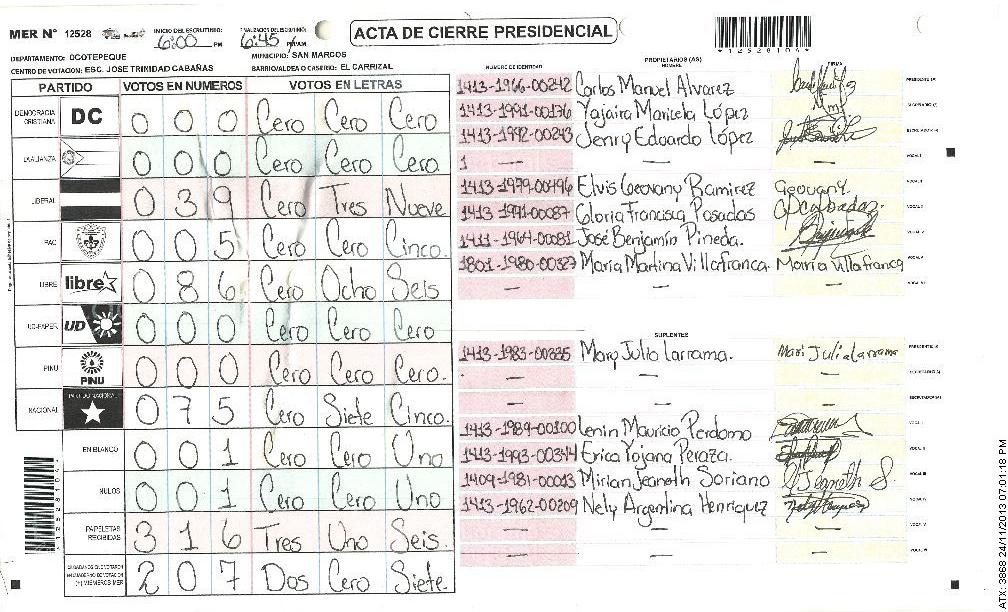 MER N° 12528 INICIO DEL ESCRUTINIO: 6:00 PM 6:45 PM ACTA DE CIERRE PRESIDENCIAL
12528106
DEPARTAMENTO: OCOTEPEQUE MUNICIPIO: SAN MARCOS
CENTRO DE VOTACION: ESC. JOSE TRINIDAD CABAÑAS BARRIO/ALDEA O CASERIO: EL CARRIZAL
PARTIDO VOTOS EN NUMEROS VOTOS EN LETRAS
DEMOCRACIA CRISTIANA DC 0 0 0 Cero Cero Cero
0 0 0 Cero Cero Cero
LIBERAL 0 3 9 Cero Tres Nueve
PAC 0 0 5 Cero Cero Cinco.
LIBRE libre 0 8 6 Cero Ocho Seis
UD-FAPER UD 0 0 0 Cero Cero Cero
PINU PINU 0 0 0 Cero Cero Cero.
NACIONAL PARTIDO NACIONAL 0 7 5 Cero Siete Cinco.
EN BLANCO 0 0 1 Cero Cero Uno
NULOS 0 0 1 Cero Cero Uno
PAPELETAS RECIBIDAS 3 1 6 Tres Uno Seis.
2 0 7 Dos Cero Siete.
PROPIETARIOS (AS)
NUMERO DE IDENTIDAD NOMBRE FIRMA
1413-1966-00242 Carlos Manuel Alvarez
1413-1991-00176 Yajaira Maricela López
1413-1992-00243 Jenry Edoardo López
1 —
1413-1979-00496 Elvis Geovany Ramirez Geovany.
1413-1991-00087 Gloria Francisca Posadas
1411-1964-00081 José Benjamín Pineda.
1801-1980-00327 Maria Martina Villafranca. Maria Villafranca
SUPLENTES
1413-1983-00335 Mary Julia Larrama. Mari Julia Larrama
1413-1989-00100 Lenin Mauricio Perdomo
1413-1993-00344 Erica Yojana Peraza.
1409-1981-00013 Mirian Jeaneth Soriano Jeaneth S.
1413-1962-00209 Nely Argentina Henriquez
ATX: 3868 24/11/2013 07:01:18 PM